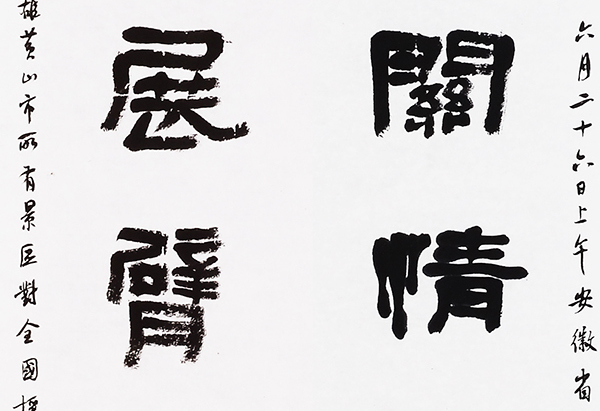 六月二十六日上午安徽省
關情
展臂
雄黃山市所有景區對全國